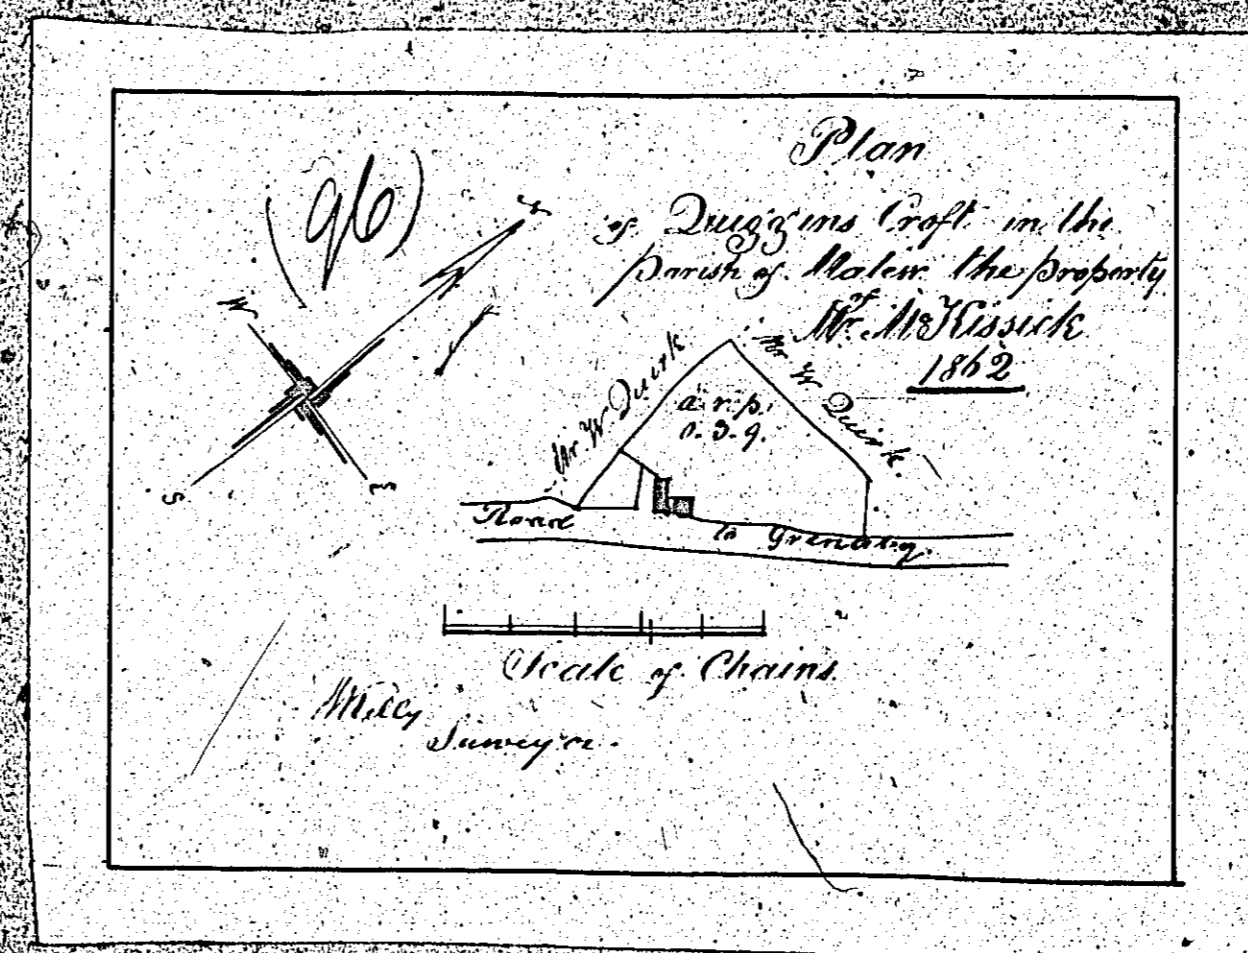 Plan
(96)
of Quiggins Croft in the
parish of Malew the property
of
Mr. McKissick
1862
N
W
S
E
Mr W Quirk
Mr W Quirk.
a. r. p.
0. 3. 9.
Road to Grenaby.
Scale of Chains
Surveyor.